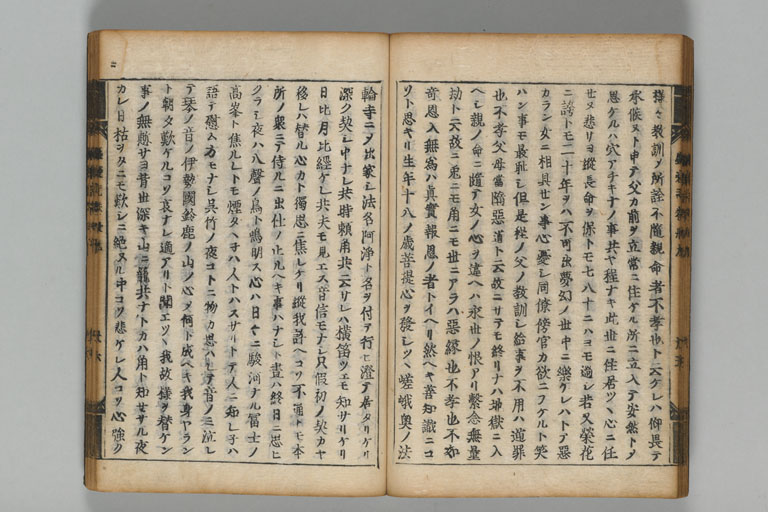 様々教訓ノ所詮不随親命者不孝也ト云ケレハ仰畏テ
承候ヌト申テ父カ前ヲ立常ニ住ケル所ニ立入テ安然トノ
思ケルハ穴アチキナノ事共ヤ程ナキ此世ニ住君ツヽ心ニ任
せヌ悲リヨ縦長命ヲ保トモ七八十二ハヨモ過し若又榮花
ニ誇トモ二十年ヲハ不可出夢幻ノ世中ニ樂ケレハトテ惡
カラン女ニ相具せン事心憂し同僚傍官カ欲ニフケルト笑
ハン事モ最耻し但是程ノ父ノ教訓し給事ヲ不用ハ道罪
也不孝父母當墮惡道ト云故ニサテモ終リナハ地獄ニ入
ヘし親ノ命ニ随テ女ノ心ヲ違ヘハ永世ノ恨アリ繋念無量
劫ト云故ニ兎ニモ角ニモ世ニアラハ惡縁也不孝也不如
奇恩入無為ハ真實報恩ノ者トイヘリ然ヘキ善知識ニコ
ソト思キリ生年十八ノ歳菩提心ヲ發しツヽ嵯峨奥ノ法
輪寺ニノ出家し法名阿浄ト名ヲ付テ行ヒ澄テ居タリケリ
深ク契し中ナレ共時頼角共云サレハ横笛ツユモ知サリケリ
日比月比經ケレ共夫モ見エス音信モナし只假初ノ契カヤ
移レハ替ル心カト獨思ニ焦レケリ縦我許ヘコソ不通トモ本
所ノ衆ニテ侍ルニ出仕ノ止ルヘキ事ハナしト晝ハ終日ニ思ヒ
クラし夜ハ八聲ノ鳥ト鳴明ス心ハ日ヤニ駿河ナル冨士ノ
高峯ト焦ルレトモ煙タヽ子ハ人トハスサリトテ人ニ知レ子ハ
語テ慰ム方モナし呉竹ノ夜コトニ物カ思ハレテ音ノミ泣レ
テ琴ノ音ノ伊勢國鈴鹿ノ山ノ心ヌ何ト成ヘキ我身ヤラン
ト朝夕歎ケルコソ哀ナレ適アリト聞エツヽ我故様ヲ替ケン
事ノ無慙サヨ昔世深キ山ニ籠共ナトカハ角ト知せサル夜
カレ日枯ヲタニモ歎しニ絶ヌル中コソ悲ケレ人コソ心強ク